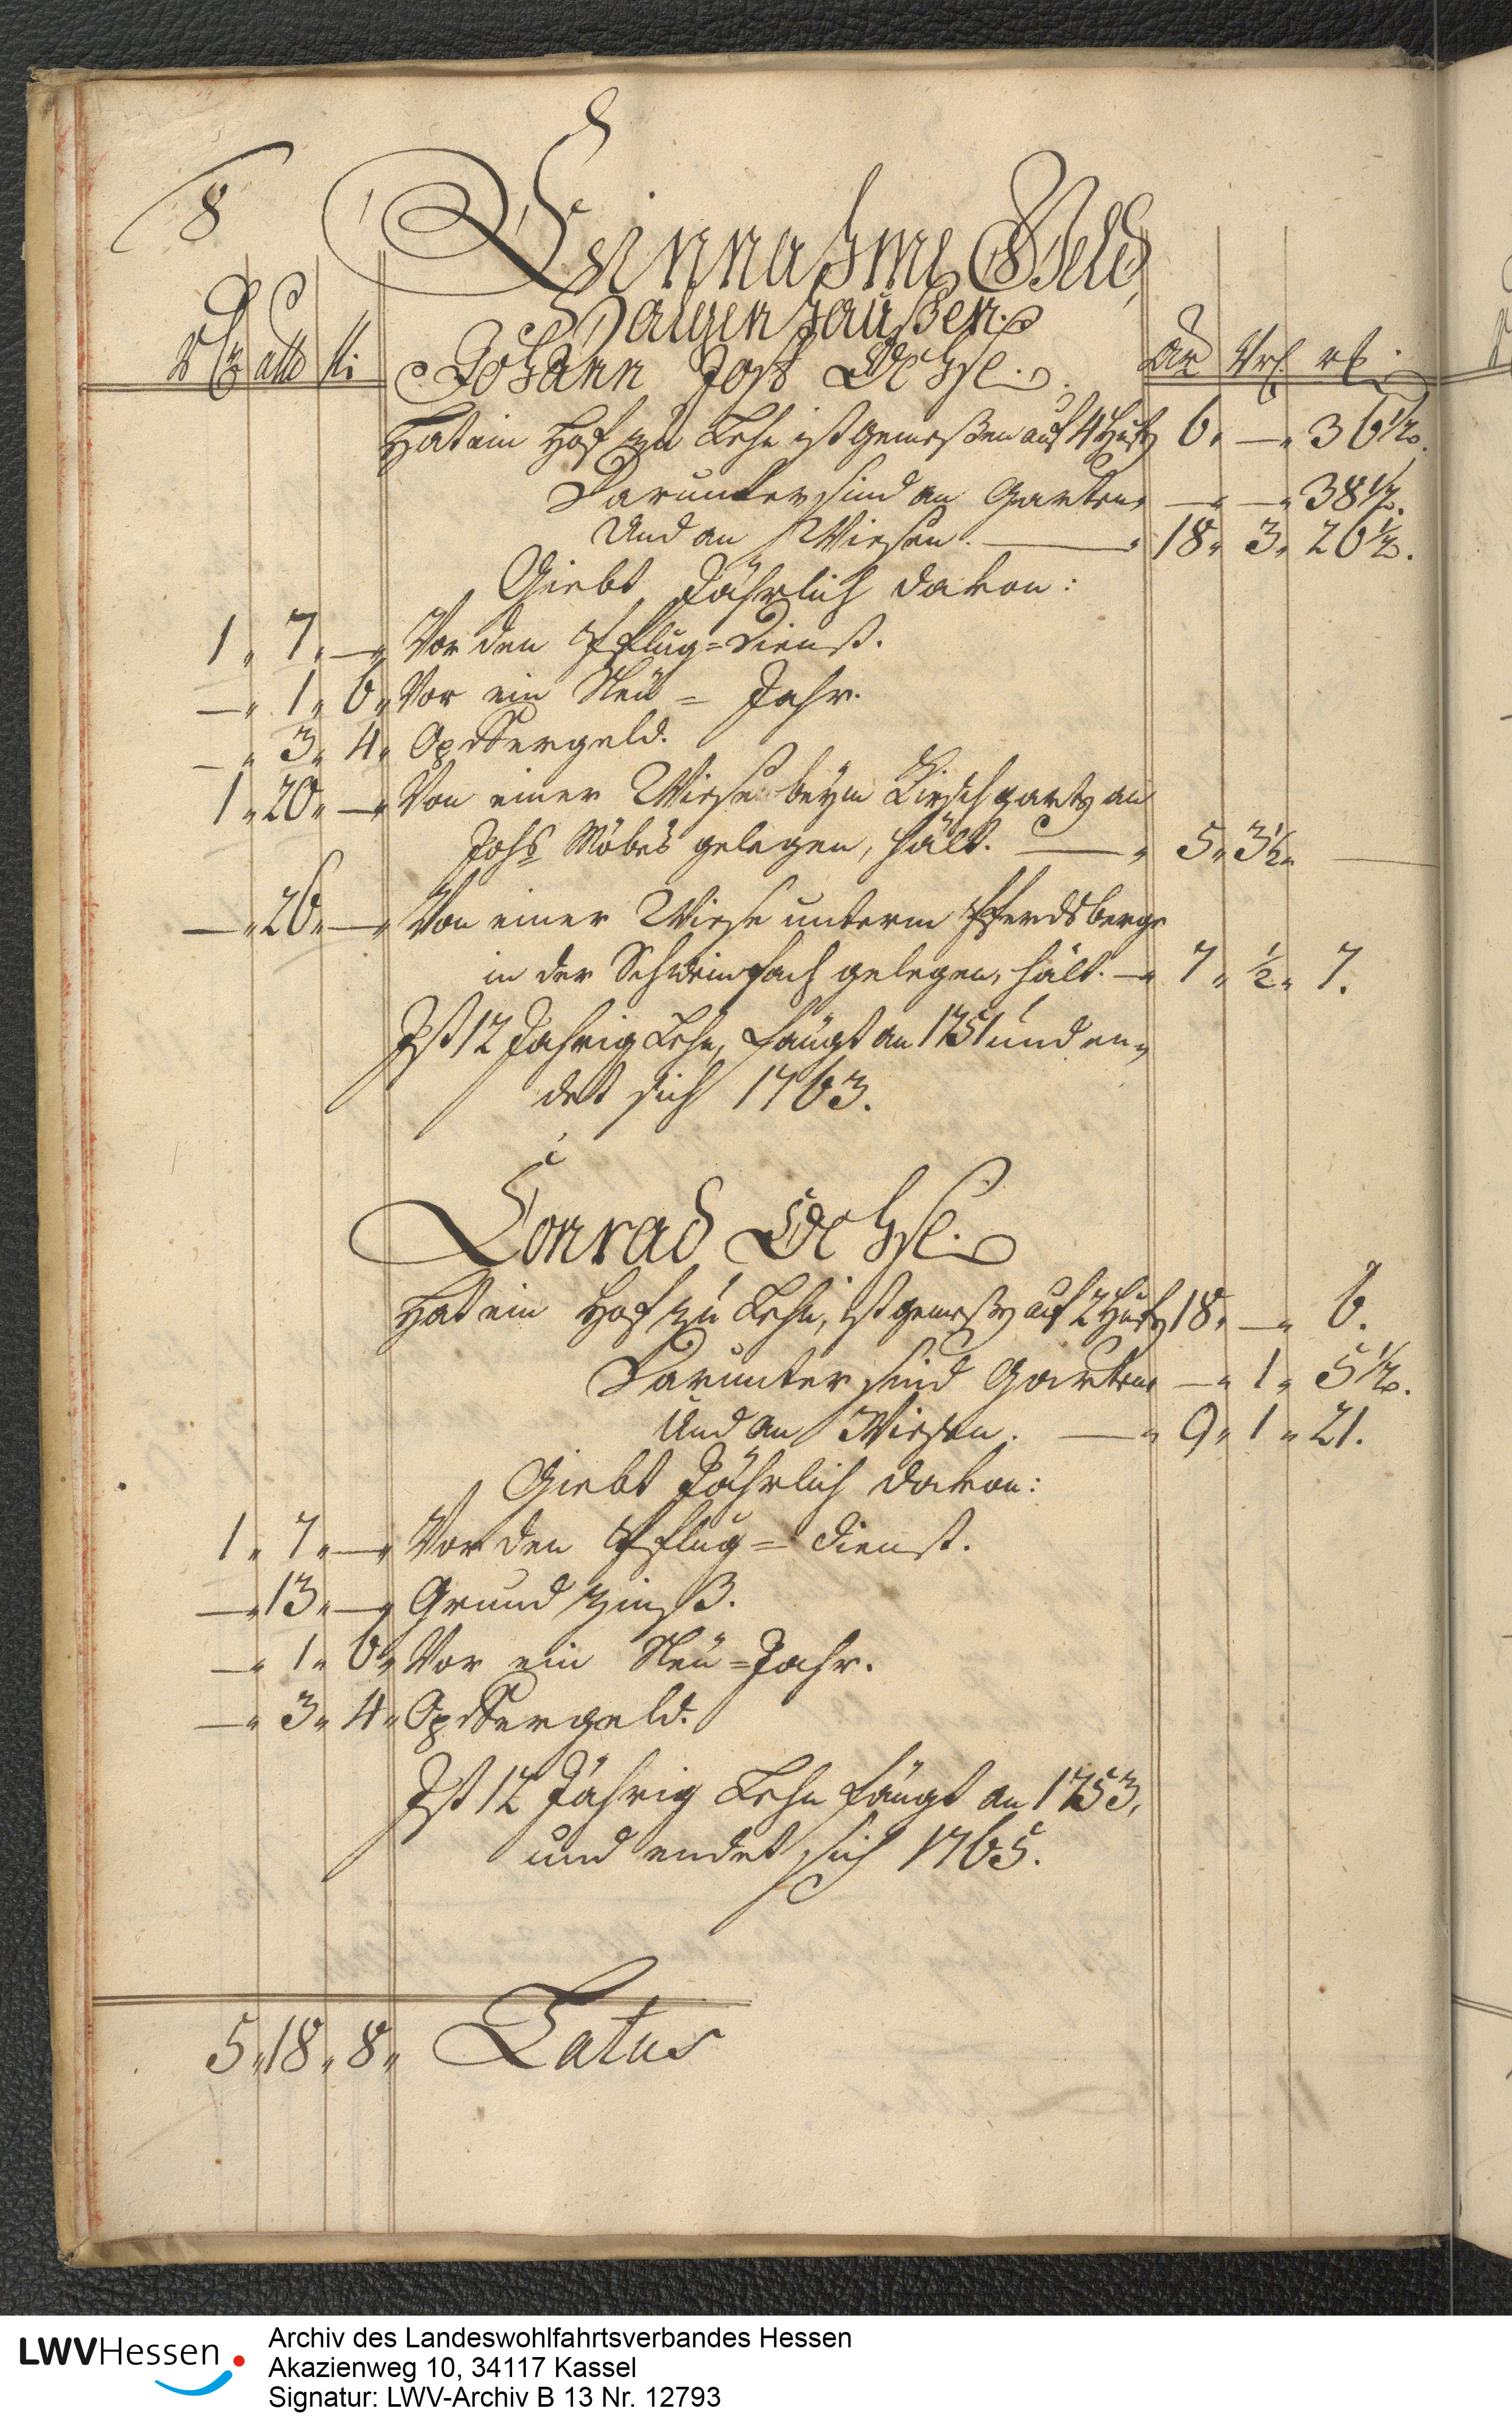 8
Einnahme Geld,
Halgenhaußen.
Rthlr alb hl: Johann Jost Ochse. Ar Vrt. rt.
Hat ein Hof zu Lehn ist gemeßen auf 4 Hufen 6. — 36½.
Darunter sind an Garten. — — 38½.
Und an Wiesen. — 18. 3. 26½.
Giebt Jährlich davon:
1. 7. — Vor den Pflug=Dienst.
— 1. 6. Vor ein Neü=Jahr.
— 3. 4. Opffergeld.
1. 20. — Von einer Wiese beym Kirschgarten an
Johs Möbes gelegen, hält. — 5. 3½.
— 26. — Von einer Wiese unterm Pferdsberge
in der Schweinfach gelegen, hält. — 7. ½. 7.
Ist 12 Jahrig Lehn, fängt an 1751 und en=
det sich 1763.
Conrad Ochse.
Hat ein Hof zu Lehn, ist gemeßen auf 2 Hufen 18. — 6.
Darunter sind Garten — 1. 5½.
Und an Wiesen. — 9. 1. 21.
Giebt Jährlich davon:
1. 7. — Vor den Pflug=Dienst.
— 13. — Grund Zinß.
— 1. 6. Vor ein Neü=Jahr.
— 3. 4. Opffergeld.
Ist 12 Jährig Lehn fängt an 1753,
und endet sich 1765.
5. 18. 8. Latus
LWVHessen
Archiv des Landeswohlfahrtsverbandes Hessen
Akazienweg 10, 34117 Kassel
Signatur: LWV-Archiv B 13 Nr. 12793